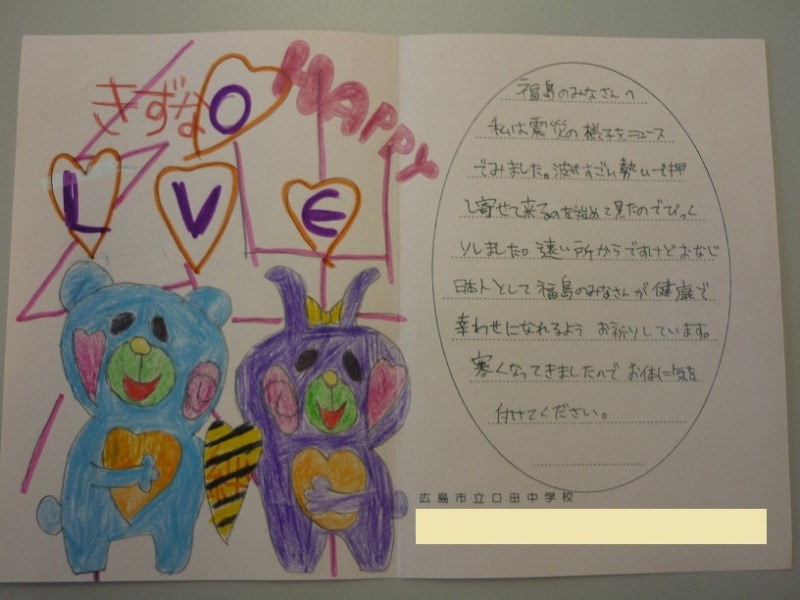 きずな
HAPPY
LOVE
福島のみなさんへ
私は震災の様子をニュース
でみました。波がすごい勢いで押
し寄せて来るのを始めて見たのでびっく
りしました。遠い所からですけどおなじ
日本人として福島のみなさんが健康で
幸わせになれるよう お祈りしています。
寒くなってきましたので お体に気を
付けてください。
広島市立口田中学校